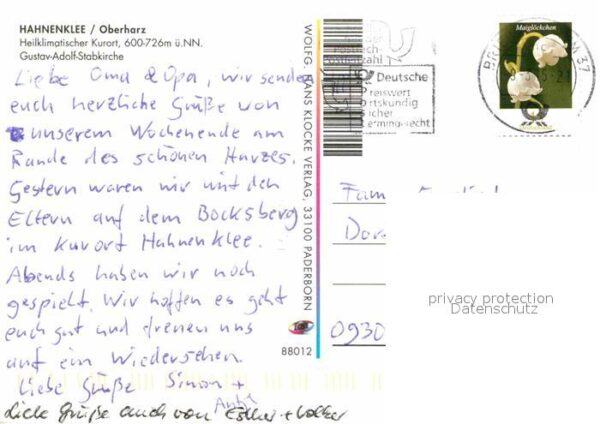 HAHNENKLEE / Oberharz
Heilklimatischer Kurort, 600-726m ü.NN.
Gustav-Adolf-Stabkirche
Liebe Oma & Opa, wir senden
euch herzliche Grüße von
unserem Wochenende am
Rande des schönen Harzes.
Gestern waren wir mit den
Eltern auf dem Bocksberg
im Kurort Hahnenklee.
Abends haben wir noch
gespielt. Wir hoffen es geht
euch gut und freuen uns
auf ein Wiedersehen.
Liebe Grüße Simon +
Antje
dicke Grüße auch von Esther + Volker
WOLFG. HANS KLOCKE VERLAG, 33100 PADERBORN
88012
Deutsche
Maiglöckchen
37
Fam
Dor
0930
privacy protection
Datenschutz